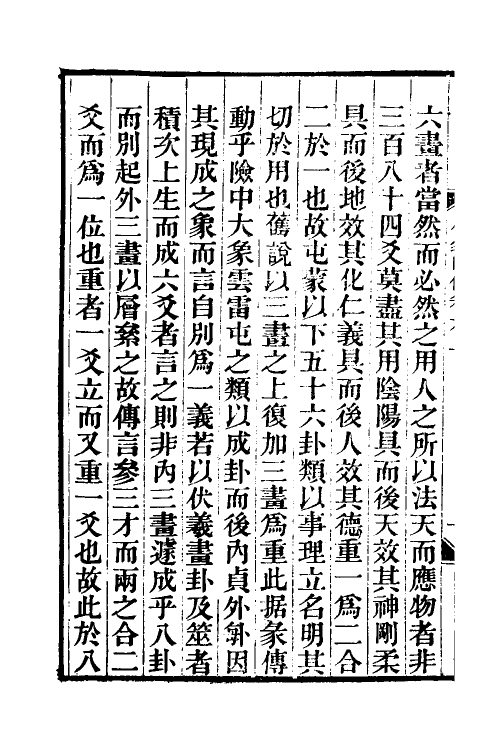 六畫者當然而必然之用人之所以法天而應物者非
三百八十四爻莫盡其用陰陽具而後天效其神剛柔
具而後地效其化仁義具而後人效其德重一爲二合
二於一也故屯蒙以下五十六卦類以事理立名明其
切於用也舊說以三畫之上復加三畫爲重此据彖傳
動乎險中大象雲雷屯之類以成卦而後內貞外𠧩因
其現成之象而言自別爲一義若以伏羲畫卦及筮者
積次上生而成六爻者言之則非內三畫遽成乎八卦
而別起外三畫以層絫之故傳言參三才而兩之合二
爻而爲一位也重者一爻立而又重一爻也故此於八